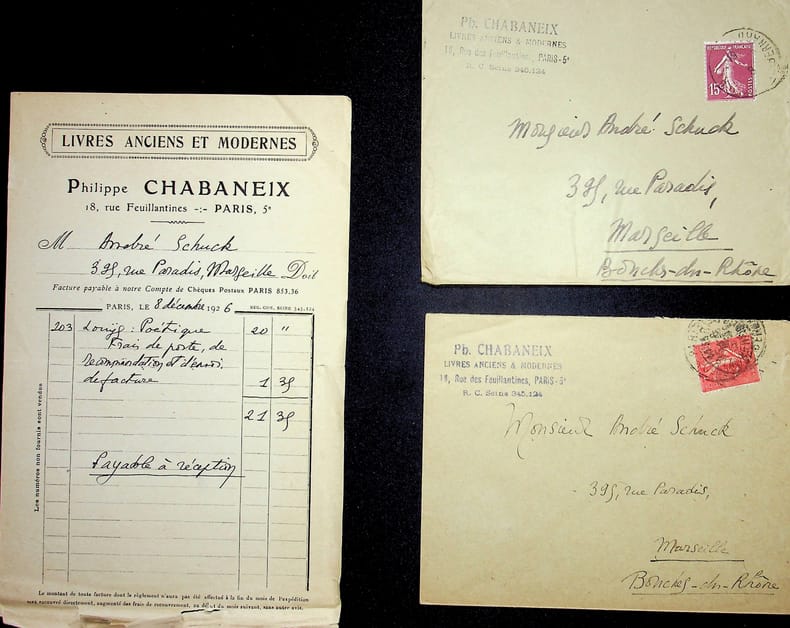 LIVRES ANCIENS ET MODERNES
Philippe CHABANEIX
18, rue Feuillantines -:- PARIS, 5e
M André Schuck
395, rue Paradis, Marseille Doit
Facture payable à notre Compte de Chèques Postaux PARIS 853.36
PARIS, LE 8 décembre 1926 REG. COM. SEINE 345.124
203 Louÿs : Poëtique 20 "
Frais de poste, de
recommandation et d'envoi
de facture 1 35
21 35
Payable à réception
Les numéros non fournis sont vendus
Le montant de toute facture dont le règlement n'aura pas été effectué à la fin du mois de l'expédition
sera recouvré directement, augmenté des frais de recouvrement, au début du mois suivant, sans autre avis.
Ph. CHABANEIX
LIVRES ANCIENS & MODERNES
18, Rue des Feuillantines, PARIS-5e
R. C. Seine 345.124
REPUBLIQUE FRANÇAISE
15c
POSTES
Monsieur André Schuck
395, rue Paradis,
Marseille
Bouches-du-Rhône
Ph. CHABANEIX
LIVRES ANCIENS & MODERNES
18, Rue des Feuillantines, PARIS-5e
R. C. Seine 345.124
Monsieur André Schuck
395, rue Paradis,
Marseille
Bouches-du-Rhône